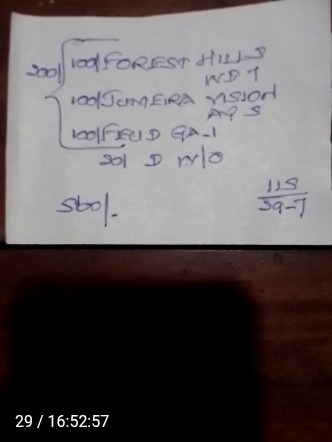 200/ 100/ FOREST HILLS
WD 7
100/ JUMEIRA VISION
AP S
100/ FIELD GA-1
20/ D N/O
560/-
115
59-7
29 / 16:52:57